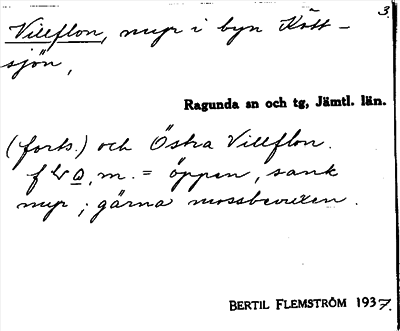 3.
Villflon, myr i byn Kött-
sjön,
Ragunda sn och tg, Jämtl. län.
(forts.) och Östra Villflon.
m. = öppen, sank
myr; gärna mossbevuxen.
BERTIL FLEMSTRÖM 1937.